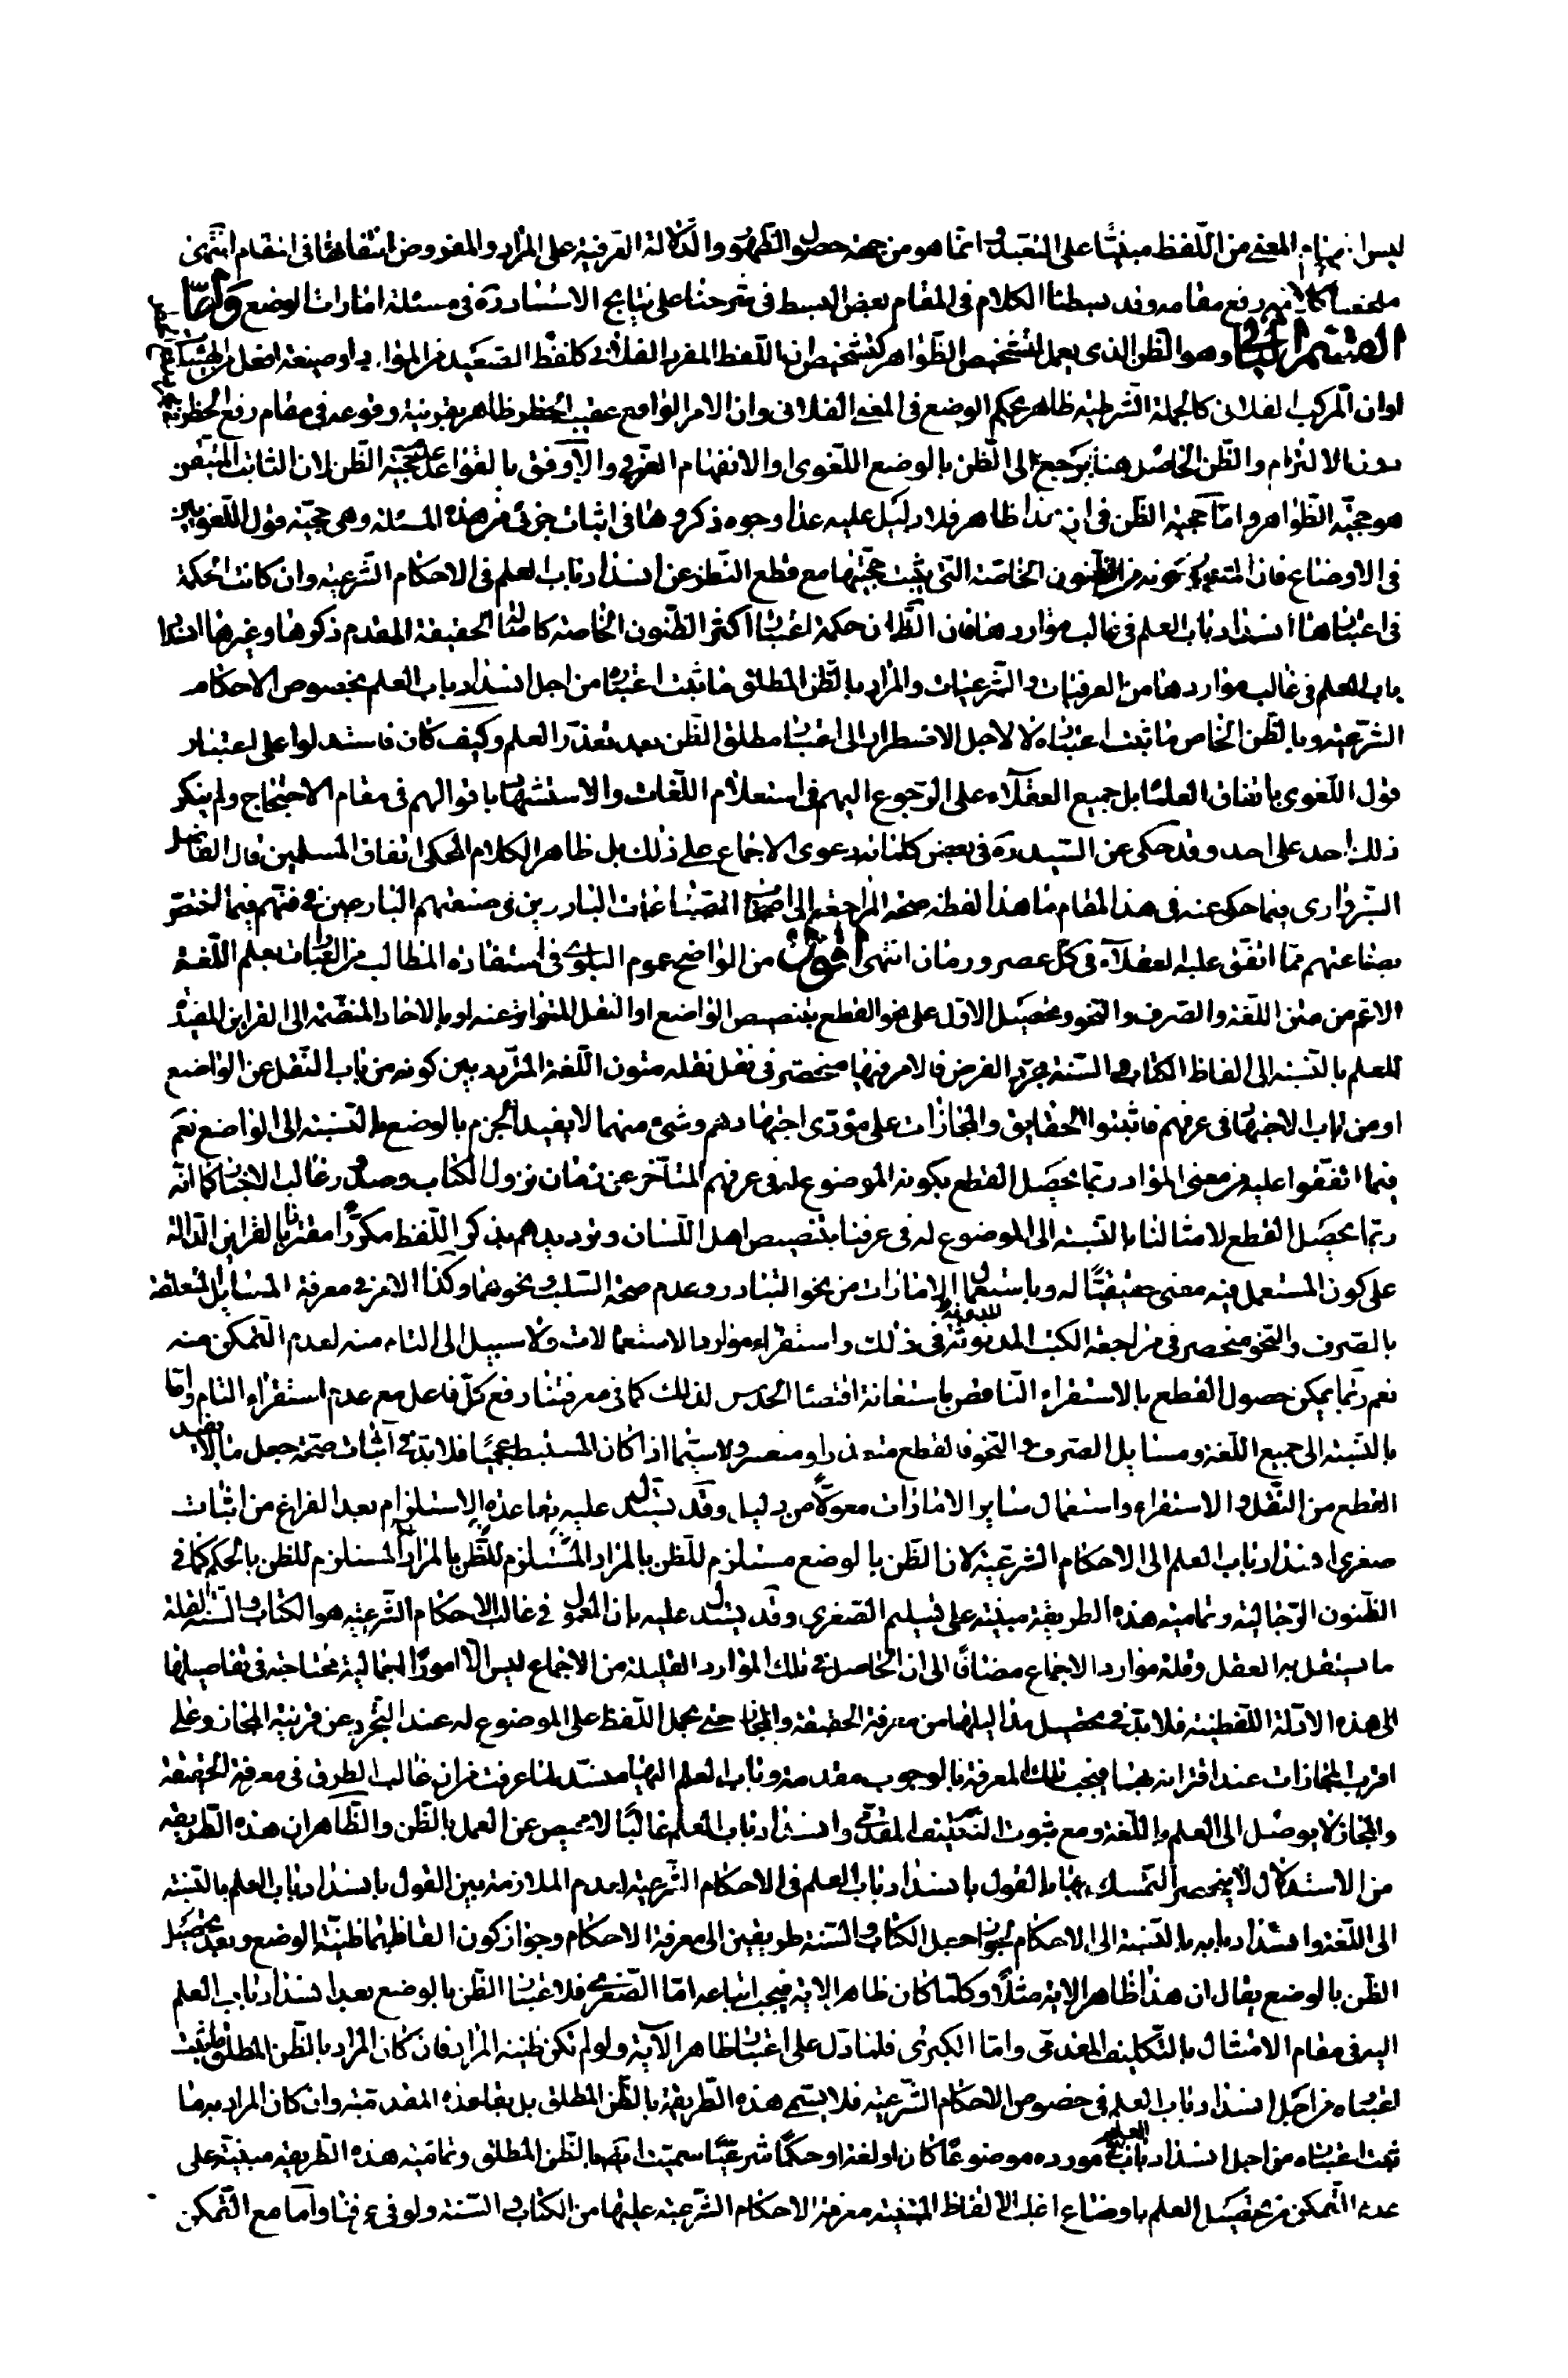 ليس انفهام المعنى من اللّفظ مبنيّا على التعبّد وانّما هو من جهة حصول الظّهور والدّلالة العرفيّة على المراد والمفروض انتفائها فى المقام انتهى
ملخصا كلامه رفع مقامه وقد بسطنا الكلام فى المقام بعض البسط فى شرحنا على نتايج الاستناد ره فى مسئلة امارات الوضع وامّا
القسم الثّانى وهو الظّن الذى يعمل لتشخيص الظّواهر كتشخيص ان اللّفظ المفرد الفلانى كلفظ الصّعيد من المواد او صيغة افعل من الهيئات
او ان المركب الفلانى كالجملة الشّرطيّة ظاهر بحكم الوضع فى المعنى الفلانى وان الامر الواقع عقيب الحظر ظاهر بقرينة وقوعه فى مقام رفع الحظر فى
دون الالزام والظّن الحاصل هنا يرجع الى الظّن بالوضع اللّغوى او الانفهام العرفى والاوفق بالقواعد عدم حجيّة الظّن لان الثابت المتيقن
هو حجيّة الظّواهر وامّا حجيّة الظّن فى ان هذا ظاهر فلا دليل عليه عدا وجوه ذكروها فى اثبات جزئى من هذه المسئلة وهى حجيّة قول اللّغويين
فى الاوضاع فان المشهور كونه من الظّنون الخاصّة التّى يثبت حجّيّتها مع قطع النّظر عن انسداد باب العلم فى الاحكام الشّرعيّة وان كانت الحكمة
فى اعتبارها انسداد باب العلم فى غالب مواردها فان الظّاهر ان حكمة اعتبار اكثر الظّنون الخاصة كاصالة الحقيقة المقدم ذكرها وغيرها انسداد
باب العلم فى غالب مواردها من العرفيات والشّرعيات والمراد بالظّن المطلق ما ثبت اعتباره من اجل انسداد باب العلم بخصوص الاحكام
الشّرعيّة وبالظّن الخاص ما ثبت اعتباره لا لاجل الاضطرار الى اعتبار مطلق الظّن بعد تعذّر العلم وكيف كان فاستدلوا على اعتبار
قول اللّغوى باتفاق العلماء بل جميع العقلاء على الرّجوع اليهم فى استعلام اللّغات والاستشهاد باقوالهم فى مقام الاحتجاج ولم ينكر
ذلك احد على احد وقد حكى عن السّيد ره فى بعض كلماته دعوى الاجماع على ذلك بل ظاهر الكلام المحكى اتفاق المسلمين قال الفاضل
السّبزوارى فيما حكى عنه فى هذا المقام ما هذا لفظه صحة المراجعة الى اصحاب الصّناعات البارزين فى صنعتهم البارعين فى فنهم فيما اختص
بصناعتهم ممّا اتفق عليه العقلاء فى كلّ عصر وزمان انتهى اقول من الواضح عموم البلوى فى استفادة المطالب من العبارات بعلم اللّغة
الاعم من متن اللّغة والصّرف والنّحو وتحصيل الاوّل على نحو القطع بتنصيص الواضع او النقل المتواتر عنه او بالاحاد المنضّمة الى القراين المفيدة
للعلم بالنّسبة الى الفاظ الكتاب والسّنة مجرّد الفرض فالامر فيها منحصر فى نقل نقله متون اللّغة المتردد بين كونه من باب النّقل عن الواضع
او من باب الاجتهاد فى عرفهم فاثبتوا الحقايق والمجازات على مؤدّى اجتهادهم وشىء منهما لا يفيد الجزم بالوضع بالنّسبة الى الواضع نعم
فيما اتفقوا عليه من معنى المواد ربّما يحصل القطع بكونه الموضوع له فى عرفهم المتاخر عن زمان نزول الكتاب وصدور غالب الاخبار كما انّه
ربّما يحصل القطع لامثالنا بالنّسبة الى الموضوع له فى عرفنا بتنصيص اهل اللّسان وترديدهم بذكر اللّفظ مكرّرا مقترنا بالقراين الدّالة
على كون المستعمل فيه معنى حقيقيّا له وباستعمال الامارات من نحو التبادر وعدم صحة السّلب ونحوهما وكذا الامر فى معرفة المسايل المتعلقة
بالصّرف والنّحو منحصر فى مراجعة الكتب المدونة فى ذلك واستقراء موارد الاستعمالات ولا سبيل الى التام منه لعدم التّمكن منه
نعم ربّما يمكن حصول القطع بالاستقراء النّاقص باستعانة اقتضاء الحدس لذلك كما فى معرفتنا رفع كلّ فاعل مع عدم استقراء التام وامّا
بالنّسبة الى جميع اللّغة ومسايل الصّرف والنّحو فالقطع متعذر او متعسر ولا سيّما اذا كان المستنبط عجميّا فلا بدّ فى اثبات صحّة جعل ما لا يفيد
القطع من النّقل والاستقراء واستعمال ساير الامارات معولا من دليل وقد يستدل عليه بقاعدة الاستلزام بعد الفراغ من اثبات
صغرى انسداد باب العلم الى الاحكام الشرعيّة لان الظّن بالوضع مستلزم للظّن بالمراد المستلزم للظّن بالحكم كما فى
الظّنون الرّجاليّة وتماميّة هذه الطريقة مبنيّة على تسليم الصّغرى وقد يستدل عليه بان المعول فى غالب الاحكام الشّرعيّة هو الكتاب والسّنة لقلة
ما يستقل به العقل وقلة موارد الاجماع مضافا الى ان الحاصل فى تلك الموارد القليلة من الاجماع ليس الّا امورا اجمالية محتاجة فى تفاصيلها
الى هذه الادلّة اللّفظيّة فلا بدّ فى تحصيل مداليلها من معرفة الحقيقة والمجاز حتى يحمل اللّفظ على الموضوع له عند التّجرد عن قرينة المجاز وعلى
اقرب المجازات عند اقترانه بها فيجب تلك المعرفة بالوجوب مقدمة وباب العلم اليها منسد لما عرفت من ان غالب الطرق فى معرفة الحقيقة
والمجاز لا يوصل الى العلم باللّغة ومع ثبوت التّكليف المقدّمى وانسداد باب العلم غالبا لا محيص عن العمل بالظّن والظّاهر ان هذه الطّريقة
من الاستدلال لا ينحصر التمسك بها بالقول بانسداد باب العلم فى الاحكام الشّرعيّة لعدم الملازمة بين القول بانسداد باب العلم بالنّسبة
الى اللّغة وانسداد بابه بالنّسبة الى الاحكام لجواز جعل الكتاب والسّنة طريقين الى معرفة الاحكام وجواز كون الفاظهما ظنيّة الوضع وبعد تحصيل
الظّن بالوضع يقال ان هذا ظاهر الاية مثلا وكلّما كان ظاهر الاية فيجب اتباعه امّا الصّغرى فلاعتبار الظّن بالوضع بعد انسداد باب العلم
اليه فى مقام الامتثال بالتّكليف المقدمى وامّا الكبرى فلما دلّ على اعتبار ظاهر الآية ولو لم تكن ظنيّة المراد فان كان المراد بالظّن المطلق ما ثبت
اعتباره من اجل انسداد باب العلم فى خصوص الاحكام الشّرعيّة فلا يسمّى هذه الطّريقة بالظّن المطلق بل بقاعدة المقدميّة وان كان المراد به ما
ثبت اعتباره من اجل انسداد باب العلم فى مورده موضوعا كان او لغة او حكما شرعيّا سميّت ايضا بالظّن المطلق وتماميّة هذه الطّريقة مبنيّة على
عدم التّمكن من تحصيل العلم باوضاع اغلب الالفاظ المبنية معرفة الاحكام الشّرعيّة عليها من الكتاب والسّنة ولو فى عرفنا وامّا مع التّمكن